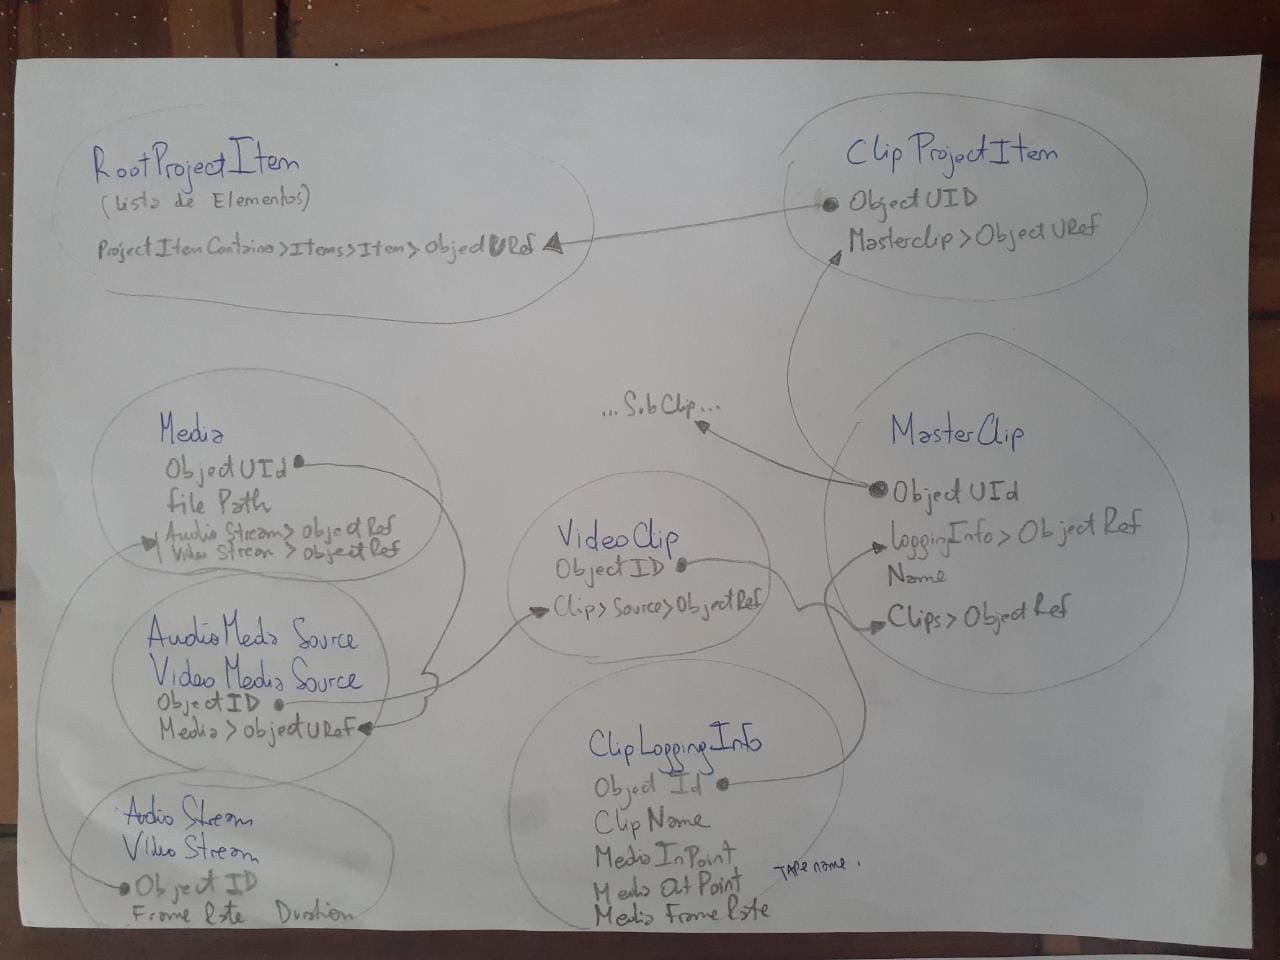 RootProjectItem
(Lista de Elementos)
ProjectItemContaino>Items>Item>ObjectURef
ClipProjectItem
ObjectUID
Masterclip>ObjectURef
Media
ObjectUId
File Path
AudioStream>ObjectRef
VideoStream>ObjectRef
...SubClip...
MasterClip
ObjectUId
loggingInfo>ObjectRef
Name
Clips>ObjectRef
VideoClip
ObjectID
Clip>Source>ObjectRef
AudioMedia Source
VideoMedia Source
ObjectID
Media>ObjectURef
ClipLoggingInfo
Object Id
ClipName
MediaInPoint
Media OutPoint
Media FrameRate
TAPE name.
Audio Stream
Video Stream
ObjectID
FrameRate Duration